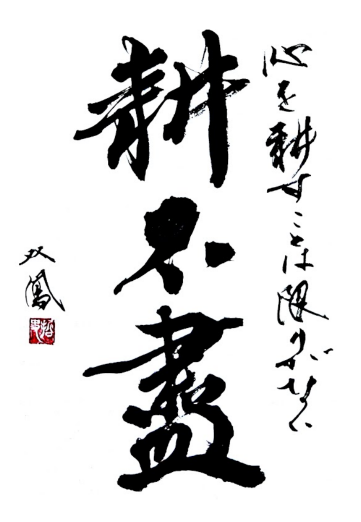 心を耕すことは限りがない
耕不盡
双鳳